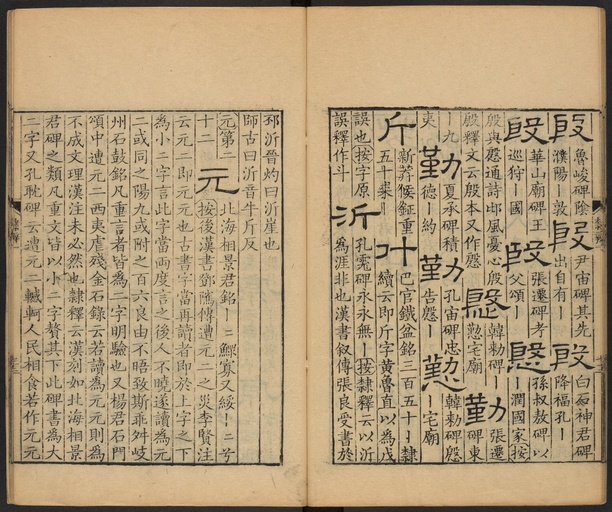 殷魯峻碑陰濮陽｜敦殷尹宙碑其先出自有｜殷白石神君碑降福孔｜
殷華山廟碑王巡狩｜國殷張遷碑考父頌｜慇孫叔敖碑以｜潤國家按
殷與慇通詩邶風憂心殷殷釋文云殷本又作慇慇韓勑碑｜懃宅廟勤張遷碑東
｜九夷勤夏承碑積德｜約勤孔宙碑忠告慇｜懃韓勑碑慇｜宅廟
斤新莽候鉦重五十｜斤巴官鐵盆銘三百五十｜隸續云即斤字黃魯直以為戊
誤也按字原誤釋作斗沂孔宙碑永永無｜按隸釋云以沂為涯非也漢書叙傳張良受書於
邳沂晉灼曰沂崖也
師古曰沂音牛斤反
元第二
十二元北海相景君銘｜二鰥寡又綏｜二兮
按後漢書鄧騭傳遭元二之災李賢注
云元二即元元也古書字當再讀者即於上字之下
為小二字言此字當兩度言之後人不曉遂讀為元
二或同之陽九或附之百六良由不晤致斯乖舛岐
州石鼓銘凡重言者皆為二字明驗也又楊君石門
頌中遭元二西夷虐殘金石錄云若讀為元元則為
不成文理漢注未必然也隸釋云漢刻如北海相景
君碑之類凡重文皆以小二字贅其下此碑書為大
二字又孔耽碑云遭元二轗軻人民相食若作元元